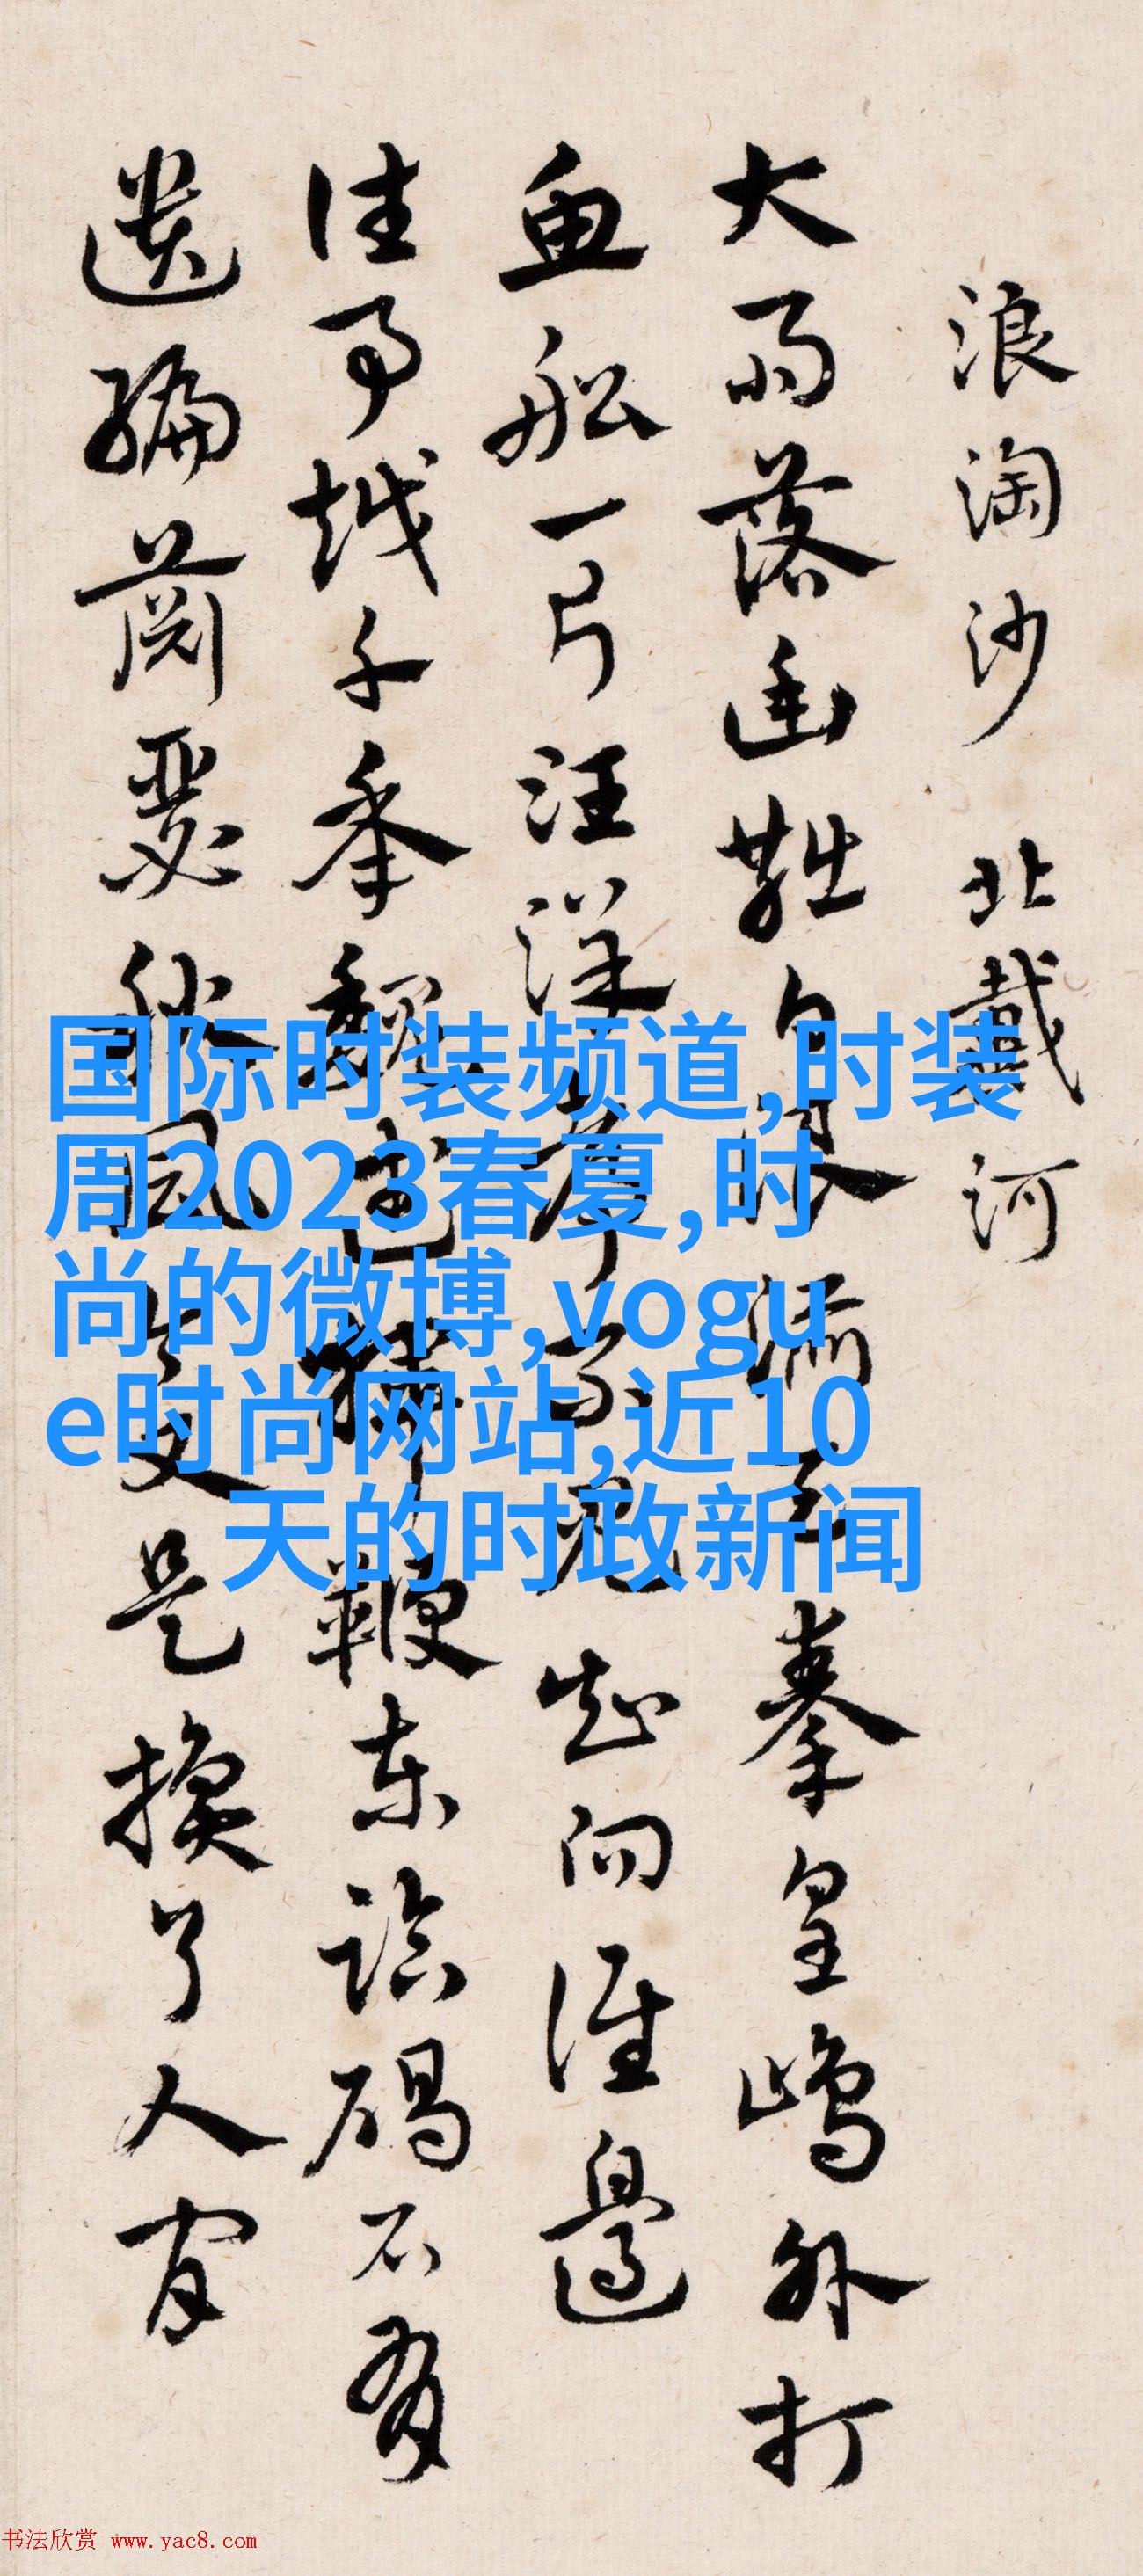 浪淘沙 北戴河
大雨落幽燕白浪滔天秦皇島外打
魚船一片汪洋都不見知向誰邊
往事越千年魏武揮鞭東臨碣石有
遺編蕭瑟秋風今又是換了人間
国际时装频道,时装
周2023春夏,时
尚的微博,vogu
e时尚网站,近10
天的时政新闻
书法欣赏 www.yac8.com